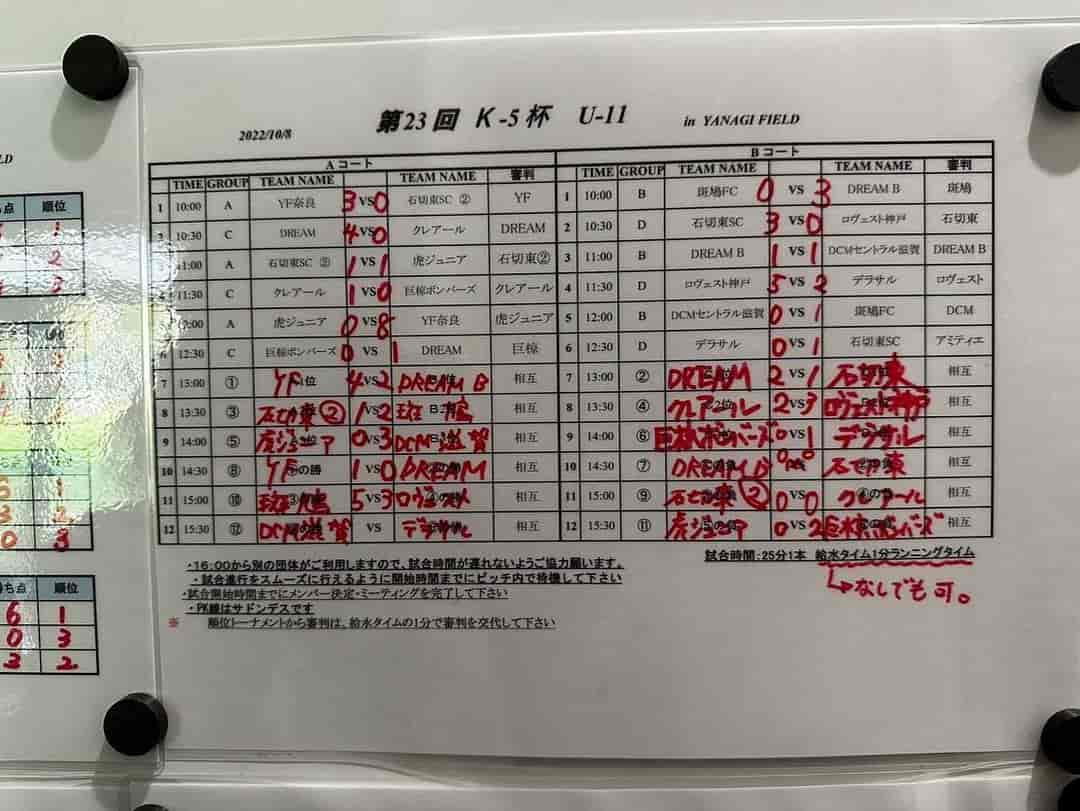 LD
ち点 順位
1
2
3
1
2
3
ち点 順位
6 1
0 3
3 2
2022/10/8 第23回 K-5杯 U-11 in YANAGI FIELD
Aコート Bコート
TIME GROUP TEAM NAME TEAM NAME 審判 TIME GROUP TEAM NAME TEAM NAME 審判
1 10:00 A YF奈良 3 VS 0 石切東SC ② YF 1 10:00 B 斑鳩FC 0 VS 3 DREAM B 斑鳩
2 10:30 C DREAM 4 VS 0 クレアール DREAM 2 10:30 D 石切東SC 3 VS 0 ロヴェスト神戸 石切東
11:00 A 石切東SC ② 1 VS 1 虎ジュニア 石切東② 3 11:00 B DREAM B 1 VS 1 DCMセントラル滋賀 DREAM B
4 11:30 C クレアール 1 VS 0 巨椋ボンバーズ クレアール 4 11:30 D ロヴェスト神戸 5 VS 2 デラサル ロヴェスト
12:00 A 虎ジュニア 0 VS 8 YF奈良 虎ジュニア 5 12:00 B DCMセントラル滋賀 0 VS 1 斑鳩FC DCM
6 12:30 C 巨椋ボンバーズ 0 VS 1 DREAM 巨椋 6 12:30 D デラサル 0 VS 1 石切東SC アミティエ
7 13:00 ① YF 4 VS 2 DREAM B 相互 7 13:00 ② DREAM 2 VS 1 石切東 相互
8 13:30 ③ 石切東② 1 VS 2 斑鳩 相互 8 13:30 ④ クレアール 2 VS 3 ロヴェスト神戸 相互
9 14:00 ⑤ 虎ジュニア 0 VS 3 DCM滋賀 相互 9 14:00 ⑥ 巨椋ボンバーズ 0 VS 1 デラサル 相互
10 14:30 ⑧ YF 1 VS 0 DREAM 相互 10 14:30 ⑦ DREAM B 石切東 相互
11 15:00 ⑩ 斑鳩 5 VS 3 ロヴェスト 相互 11 15:00 ⑨ 石切東② 0 VS 0 クレアール 相互
12 15:30 ⑫ DCM滋賀 VS デラサル 相互 12 15:30 ⑪ 虎ジュニア 0 VS 2 巨椋ボンバーズ 相互
・16:00から別の団体がご利用しますので、試合時間が遅れないようご協力願います。 試合時間:25分1本 給水タイム1分ランニングタイム
・試合進行をスムーズに行えるように開始時間までにピッチ内で待機して下さい
↳なしでも可。
・試合開始時間までにメンバー決定・ミーティングを完了して下さい
・PK線はサドンデスです
※ 順位トーナメントから審判は、給水タイムの1分で審判を交代して下さい